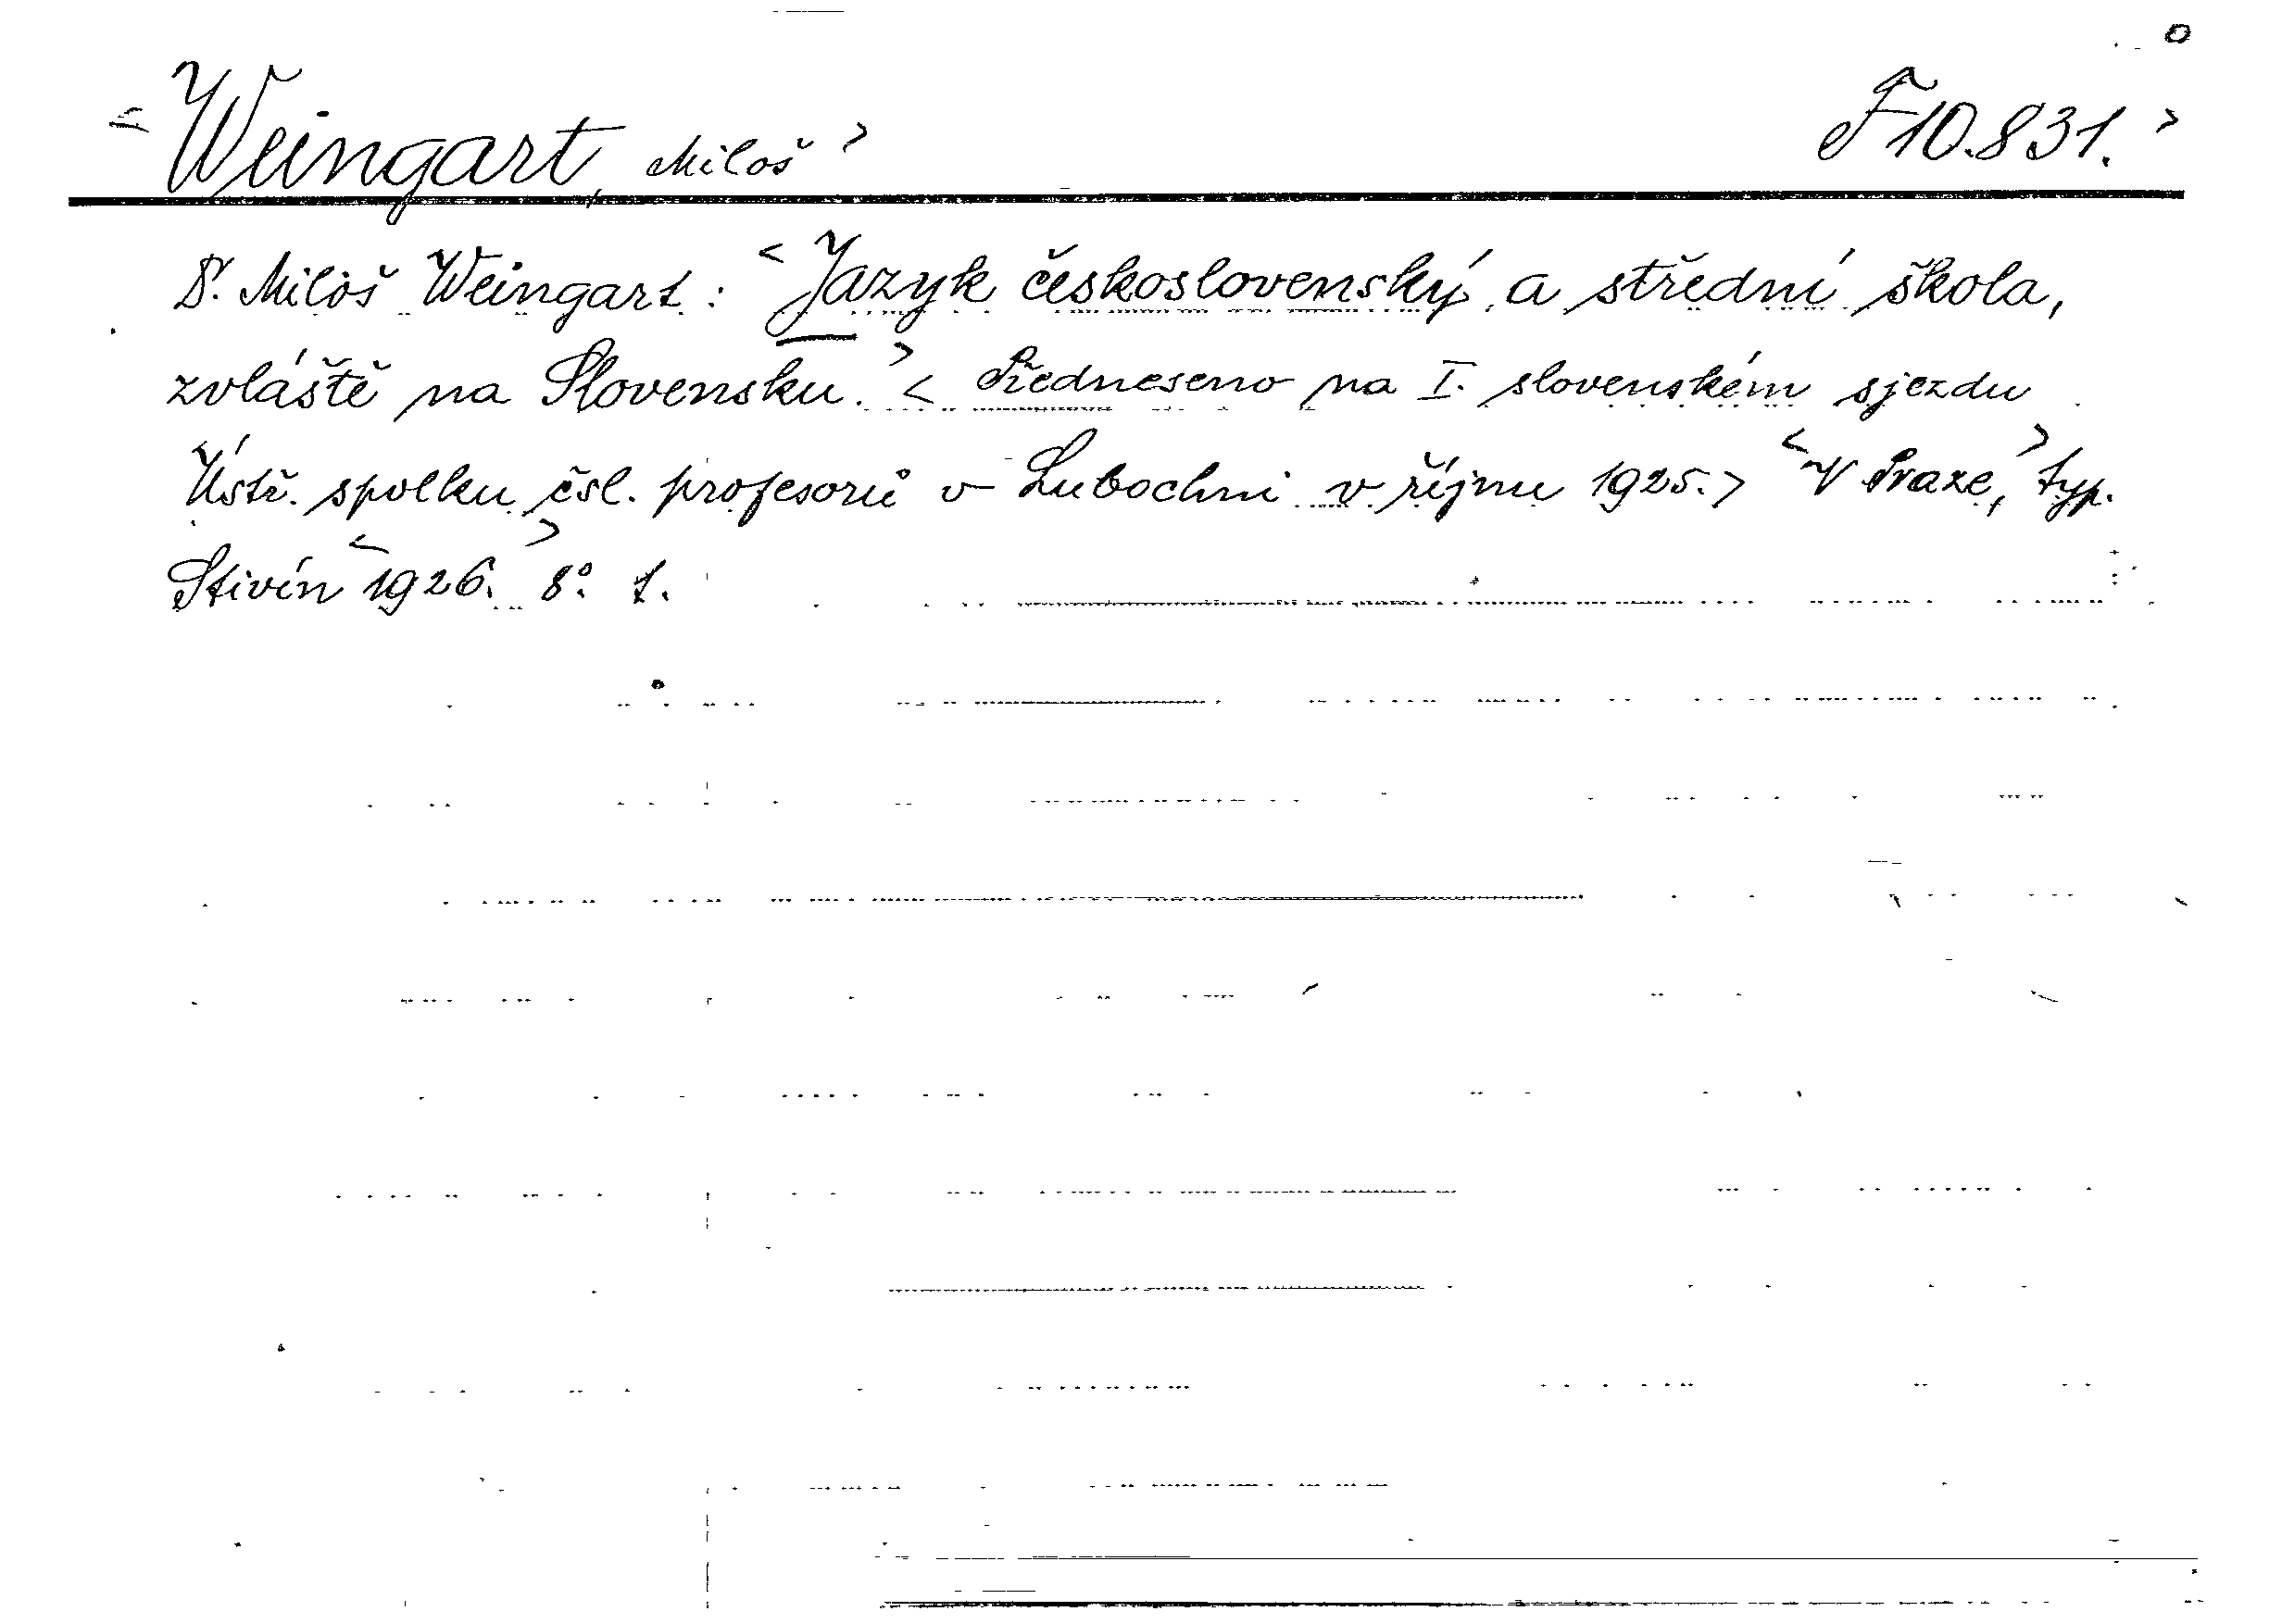 <Weingart, Miloš> F 10.831.>
Dr. Miloš Weingart: <Jazyk československý a střední škola,
zvláště na Slovensku.> < Předneseno na I. slovenském sjezdu
Ústř. spolku čsl. profesorů v Lubochni v říjnu 1925.> <V Praze,> typ.
Stivín <1926.> 8°. 1.